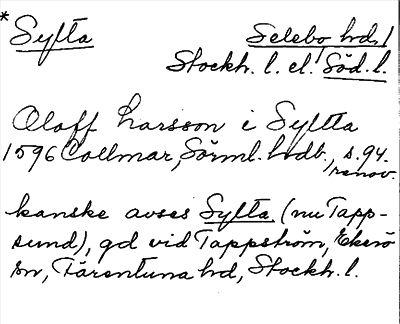 * Sylta
Selebo hd,/
Stockh. l. el. Söd. l.
Oloff Larsson i Syltta
1596 Collmar, Sörml. hdb., s. 94.
renov.
kanske avses Sylta (nu Tapp-
sund), gd vid Tappström, Ekerö
sn, Färentuna hd, Stockh. l.